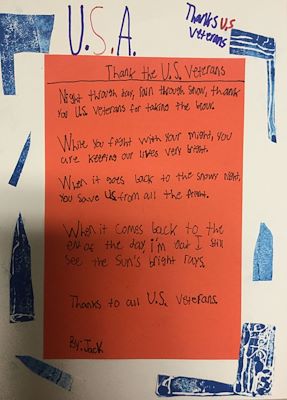 U.S.A.
Thanks US
Veterans
Thank the U.S. Veterans
Night through day, rain through snow, thank
you U.S. Veterans for taking the blow.
While you fright with your might, you
are keeping our lives very bright.
When it goes back to the snowy night,
you save US from all the fright.
When it comes back to the
end of the day, I'm that I still
see the Sun's bright rays.
Thanks to all U.S. Veterans.
By: Jack